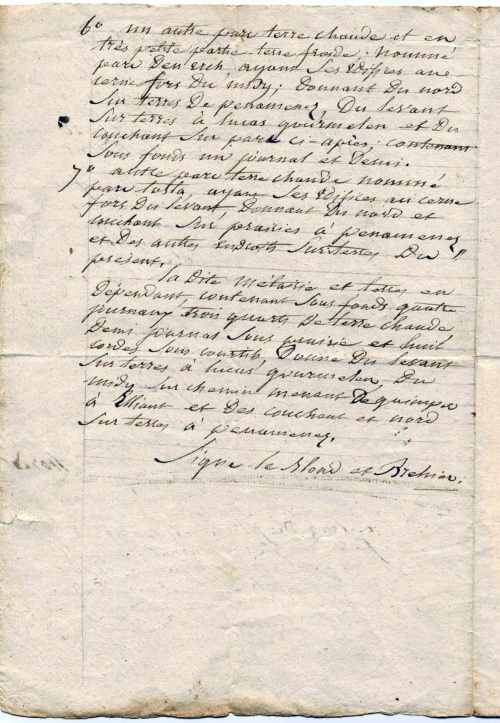 6° un autre parc terre chaude et en
très petite partie terre froide, nommé
parc Den erch ayant ses édifices au
cerne fors Du midy; Donnant Du nord
sur terres De penamenez, Du levant
sur terres à lucas gourmelen et Du
couchant sur parc ci-après, contenant
sous fonds un journal et Demi.
7° autre parc terre chaude nommé
parc ayant ses édifices au cerne
fors Du levant, Donnant Du nord et
couchant sur prairies à penamenez
et Des autres Endroits sur terres Du
présent.
la Dite métairie et terres en
Dépendant, contenant sous fonds quatre
journaux trois quarts De terre chaude
Demi journal sous prairie et huit
cordes sous courtils, Donne Du levant
sur terres à lucas gourmelen, Du
midy sur chemin menant De quimper
à Elliant et Des couchant et nord
sur terres à penamenez.
Signé le Blond et